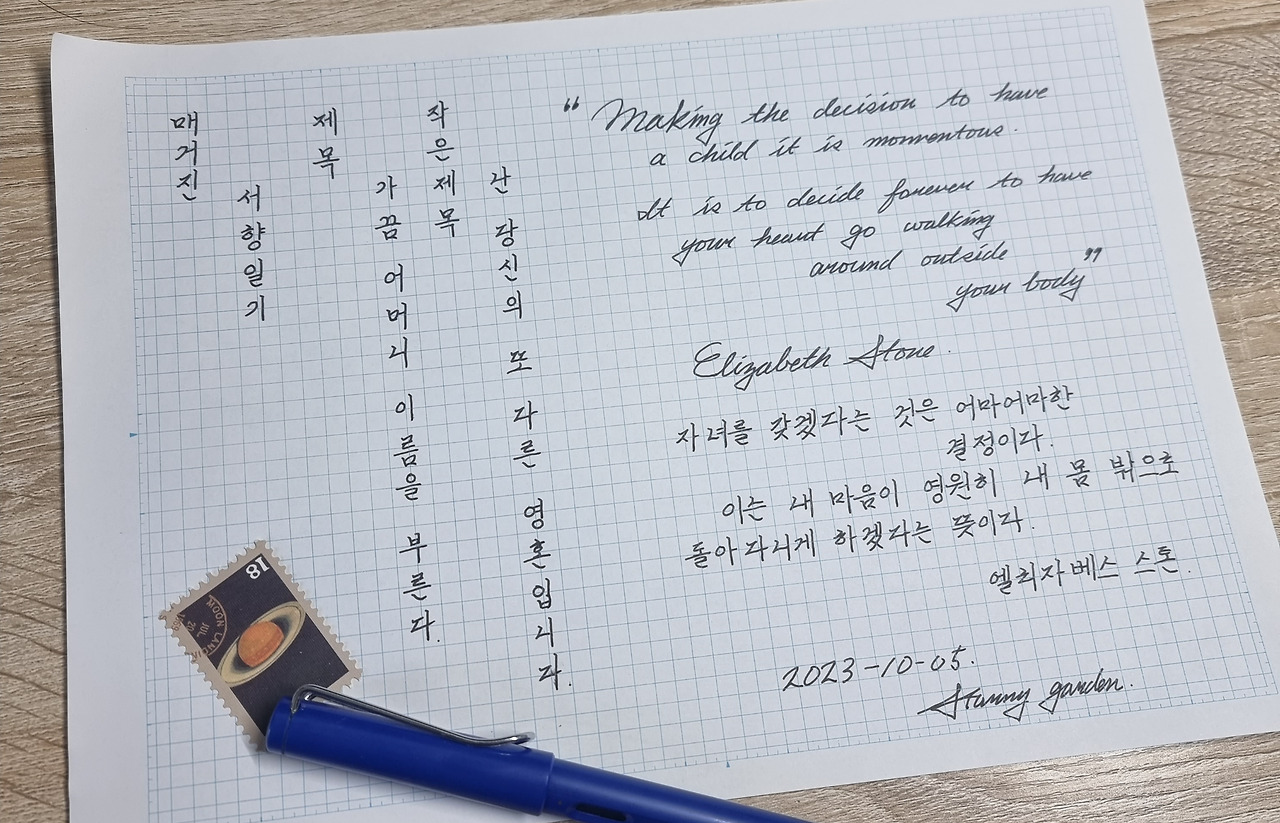 매거진
서향일기
제목
가끔 어머니 이름을 부른다.
작은 제목
난 당신의 또 다른 영혼입니다.
“ Making the decision to have
a child it is momentous.
It is to decide forever to have
your heart go walking
around outside
your body ”
Elizabeth Stone.
자녀를 갖겠다는 것은 어마어마한
결정이다.
이는 내 마음이 영원히 내 몸 밖으로
돌아다니게 하겠다는 뜻이다.
엘리자베스 스톤.
2023-10-05.
garden.
81
MOON LAN
JUL
20